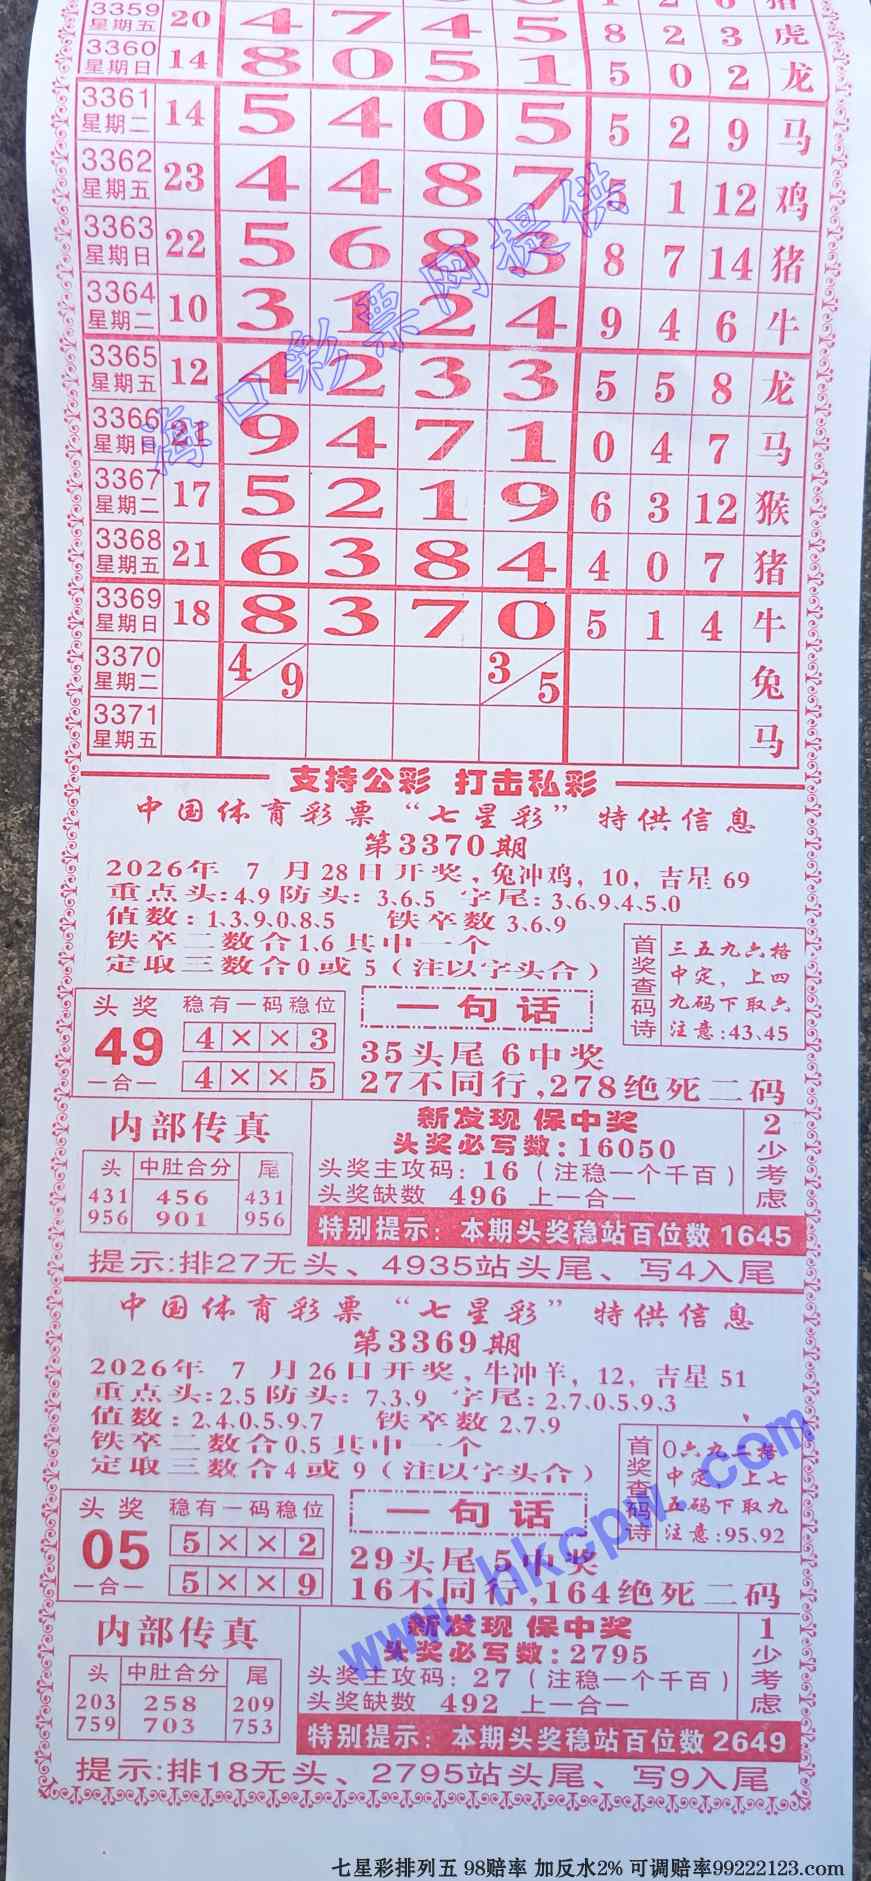 3359 星期五 20 4 7 4 5 8 2 3 虎
3360 星期日 14 8 0 5 1 5 0 2 龙
3361 星期二 14 5 4 0 5 5 2 9 马
3362 星期五 23 4 4 8 7 5 1 12 鸡
3363 星期日 22 5 6 8 3 8 7 14 猪
3364 星期二 10 3 1 2 4 9 4 6 牛
3365 星期五 12 4 2 3 3 5 5 8 龙
3366 星期日 21 9 4 7 1 0 4 7 马
3367 星期二 17 5 2 1 9 6 3 12 猴
3368 星期五 21 6 3 8 4 4 0 7 猪
3369 星期日 18 8 3 7 0 5 1 4 牛
3370 星期二 4/9 3/5 兔
3371 星期五 马
海口彩票网提供
支持公彩 打击私彩
中国体育彩票“七星彩”特供信息
第3370期
2026年 7 月28日开奖,兔冲鸡,10,吉星69
重点头:4.9防头: 3.6.5 字尾:3、6、9、4、5、0
值数:1、3、9、0、8、5 铁卒数3、6、9
铁卒二数合1.6其中一个
定取三数合0或5(注以字头合)
首奖查码诗
三五九六格
中定,上四
九码下取六
注意:43、45
头奖 49 一合一
稳有一码稳位
4 × × 3
4 × × 5
一句话
35头尾 6中奖
27不同行,278绝死二码
内部传真
头 中肚合分 尾
431 456 431
956 901 956
新发现 保中奖
头奖必写数:16050
头奖主攻码:16(注稳一个千百)
头奖缺数 496 上一合一
2少考虑
特别提示:本期头奖稳站百位数1645
提示:排27无头、4935站头尾、写4入尾
中国体育彩票“七星彩”特供信息
第3369期
2026年 7 月26日开奖,牛冲羊,12,吉星51
重点头:2.5防头: 7.3.9 字尾:2、7、0、5、9、3
值数:2.4.0.5.9.7 铁卒数2.7.9
铁卒二数合0.5其中一个
定取三数合4或9(注以字头合)
首奖查码诗
0六九一格
中定,上七
五码下取九
注意:95、92
头奖 05 一合一
稳有一码稳位
5 × × 2
5 × × 9
一句话
29头尾 5中奖
16不同行,164绝死二码
www.hkcpw.com
内部传真
头 中肚合分 尾
203 258 209
759 703 753
新发现 保中奖
头奖必写数:2795
头奖主攻码:27(注稳一个千百)
头奖缺数 492 上一合一
1少考虑
特别提示:本期头奖稳站百位数2649
提示:排18无头、2795站头尾、写9入尾
七星彩排列五 98赔率 加反水2% 可调赔率99222123.com